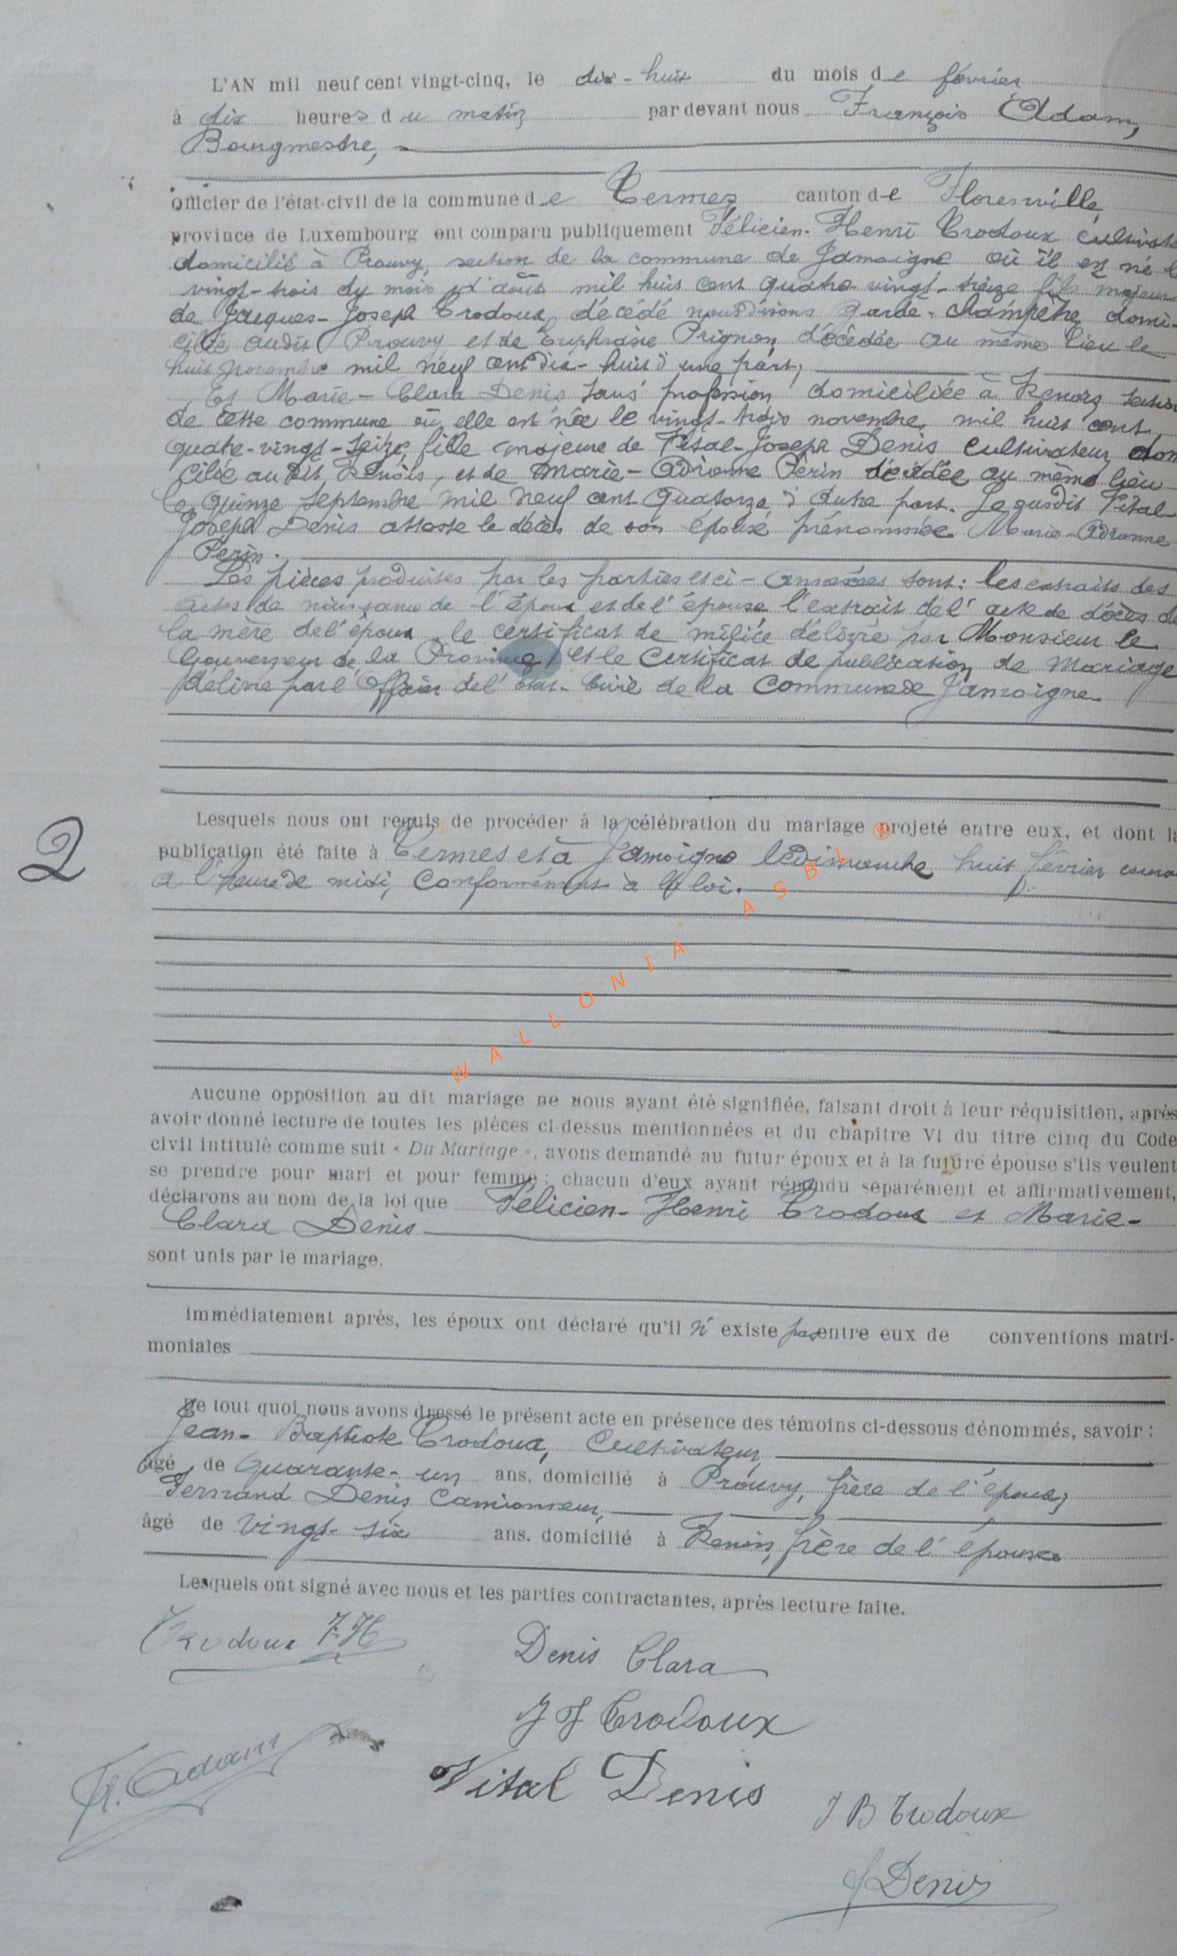 L'AN mil neuf cent vingt-cinq, le dix-huit du mois de février
à dix heures du matin par devant nous François Adam,
Bourgmestre,
officier de l'état-civil de la commune de Termes canton de Florenville
province de Luxembourg ont comparu publiquement Félicien-Henri Trodoux
domicilié à Prouvy, section de la commune de Jamoigne où il est né
vingt-trois du mois d'août mil huit cent quatre-vingt-treize fils majeur
de Jacques-Joseph Trodoux, garde-champêtre
audit Prouvy et de Euphrasie Prignon décédée au même lieu le
huit novembre mil neuf cent dix-huit d'une part,
Et Marie-Clara Denis sans profession domiciliée à section
de cette commune où elle est née le vingt-trois novembre, mil huit cent
quatre-vingt-seize, fille majeure de Vital-Joseph Denis cultivateur
au dit et de Marie- Perin décédée au même lieu
le quinze septembre mil neuf cent quatorze d'autre part. Vital
Joseph Denis atteste le décès de son prénommée Marie-
Perin.
Les pièces produites par les parties et ci-annexées sont: les extraits des
actes de naissance de l'époux et de l'épouse l'extrait de l'acte de décès de
la mère de l'époux, le certificat de milice délivré par Monsieur le
Gouverneur de la Province, et le certificat de publication de mariage
délivré par l'officier de l'état-civil de la commune de Jamoigne.
Lesquels nous ont requis de procéder à la célébration du mariage projeté entre eux, et dont la
publication été faite à Termes et à Jamoigne le dimanche huit février
à l'heure de midi, conformément à la loi.
2
WALLONIA ASBL ®
Aucune opposition au dit mariage ne nous ayant été signifiée, faisant droit à leur réquisition, après
avoir donné lecture de toutes les pièces ci-dessus mentionnées et du chapitre VI du titre cinq du Code
civil intitulé comme suit « Du Mariage », avons demandé au futur époux et à la future épouse s'ils veulent
se prendre pour mari et pour femme ; chacun d'eux ayant répondu séparément et affirmativement,
déclarons au nom de la loi que Félicien-Henri Trodoux et Marie-
Clara Denis
sont unis par le mariage.
Immédiatement après, les époux ont déclaré qu'il n'existe pas entre eux de conventions matri-
moniales
De tout quoi nous avons dressé le présent acte en présence des témoins ci-dessous dénommés, savoir :
Jean-Baptiste Trodoux, Cultivateur,
âgé de quarante-un ans, domicilié à Prouvy, frère de l'époux;
Fernand Denis Camionneur,
âgé de vingt-six ans. domicilié à frère de l'épouse
Lesquels ont signé avec nous et les parties contractantes, après lecture faite.
Trodoux F.H
Denis Clara
J J Trodoux
Fr. Adam
Vital Denis
J B Trodoux
F Denis